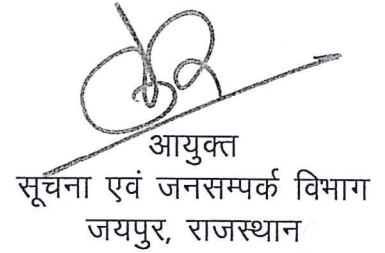 आयुक्त
सूचना एवं जनसम्पर्क विभाग
जयपुर, राजस्थान